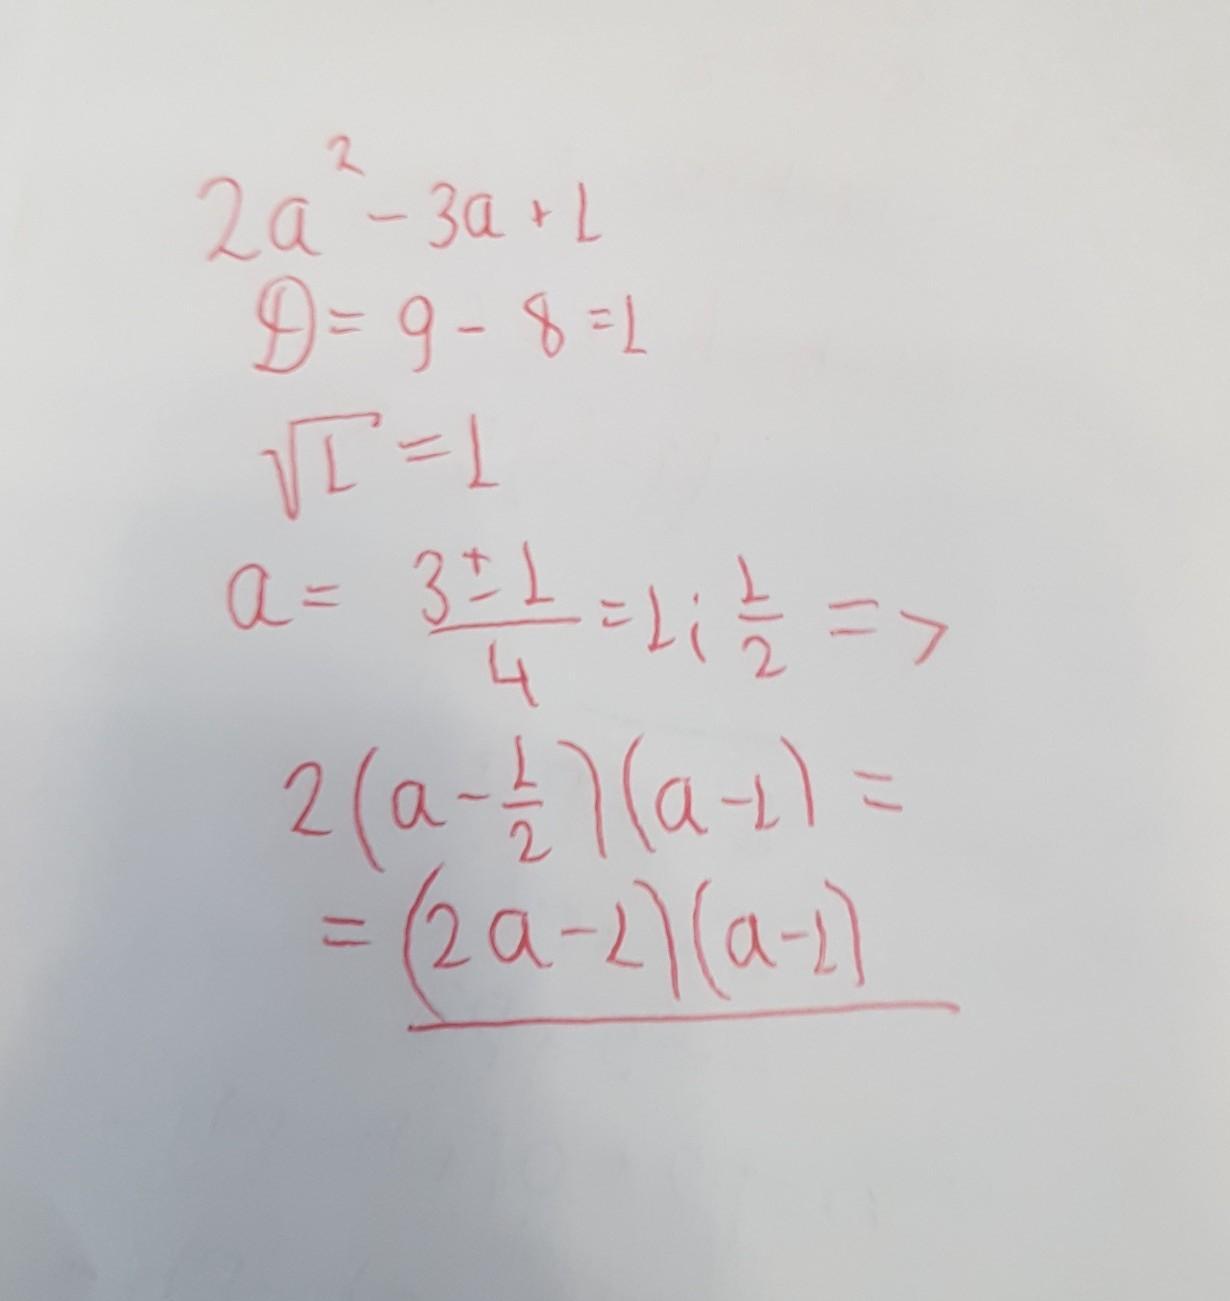 2a² - 3a + 1
D = 9 - 8 = 1
√1 = 1
a = (3 ± 1)/4 = 1; 1/2 =>
2(a - 1/2)(a - 1) =
= (2a - 1)(a - 1)